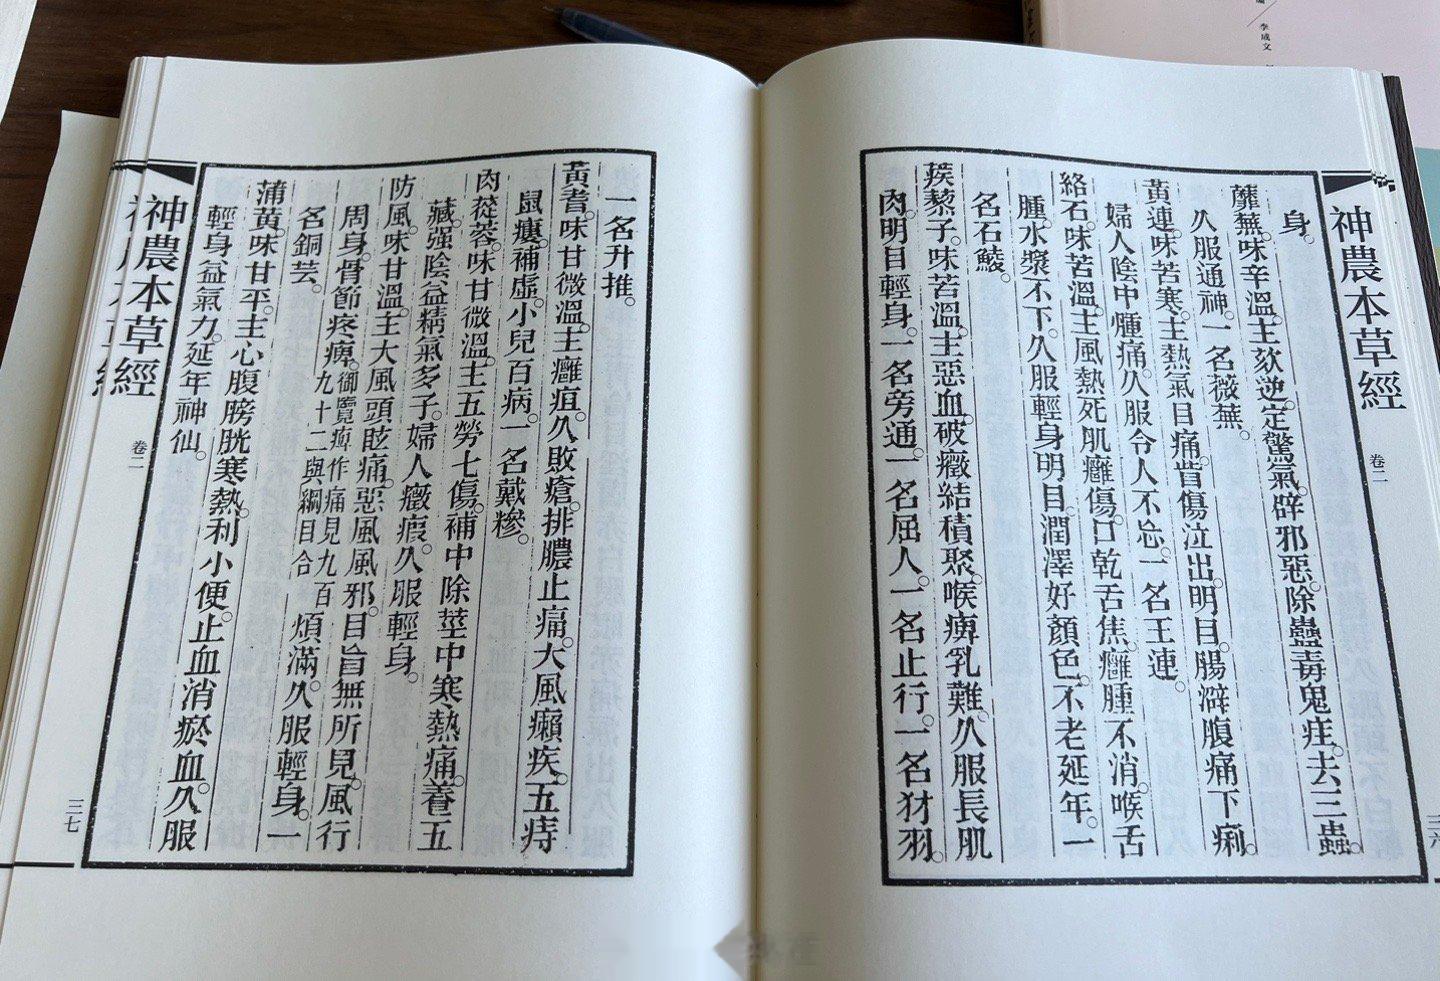 神農本草經
卷二
三六
身。
蘼蕪。味辛溫。主欬逆。定驚氣。辟邪惡。除蠱毒鬼疰。去三蟲。
久服通神。一名薇蕪。
黃連。味苦寒。主熱氣目痛。眥傷泣出。明目。腸澼腹痛下痢。
婦人陰中腫痛。久服令人不忘。一名王連。
絡石。味苦溫。主風熱死肌癰傷。口乾舌焦。癰腫不消。喉舌
腫。水漿不下。久服輕身明目。潤澤好顏色。不老延年。一
名石鯪。
蒺藜子。味苦溫。主惡血。破癥結積聚。喉痺乳難。久服長肌
肉。明目輕身。一名旁通。一名屈人。一名止行。一名犲羽。
一名升推。
黃耆。味甘微溫。主癰疽。久敗瘡。排膿止痛。大風癩疾。五痔
鼠瘻。補虛。小兒百病。一名戴糝。
肉蓯蓉。味甘微溫。主五勞七傷。補中除莖中寒熱痛。養五
藏。强陰益精氣多子。婦人癥瘕。久服輕身。
防風。味甘溫。主大風頭眩痛。惡風風邪。目盲無所見。風行
周身。骨節疼痺。御覽痺作痛見九百九十二與綱目合煩滿。久服輕身。一
名銅芸。
蒲黃。味甘平。主心腹膀胱寒熱。利小便。止血消瘀血。久服
輕身益氣力。延年神仙。
神農本草經
卷二
三七
李成文